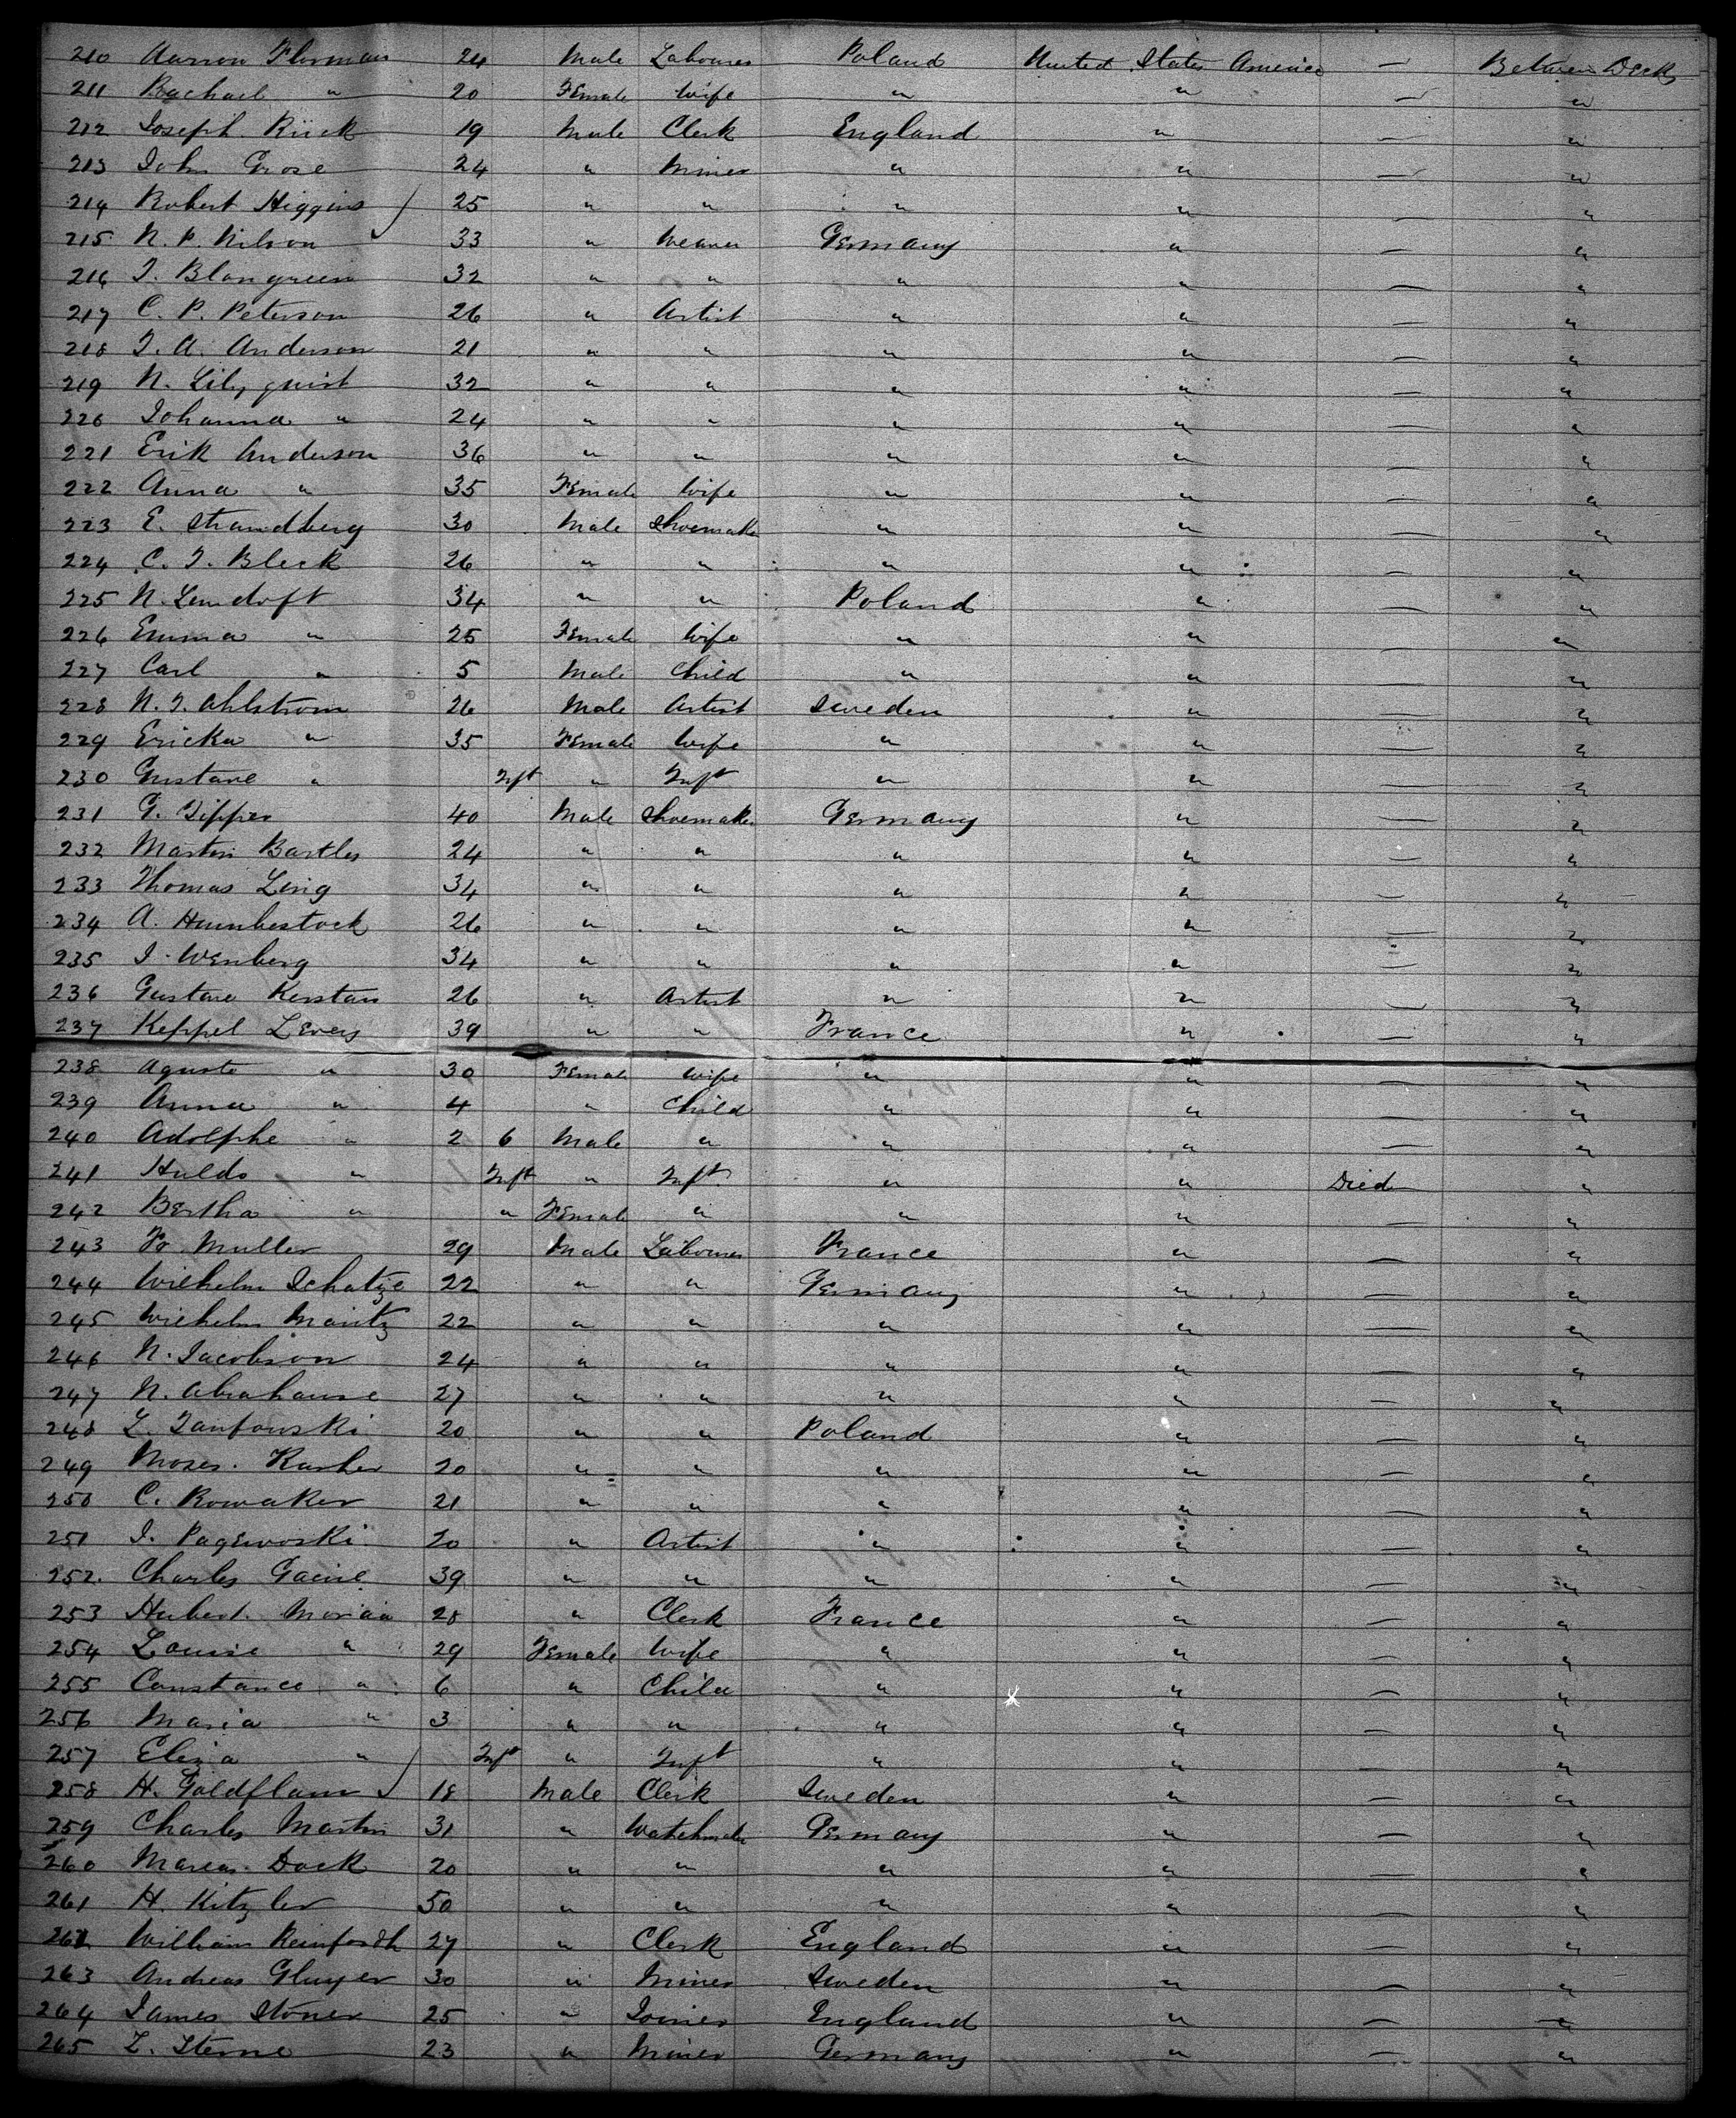 210 Aarron Florman 24 Male Labourer Poland United States America — Between Decks
211 Rachael " 20 Female Wife " " — "
212 Joseph Rück 19 Male Clerk England " — "
213 John Grose 24 " Miner " " — "
214 Robert Higgins 25 " " " " — "
215 N. P. Nilson 33 " Weaver Germany " — "
216 J. Blongreen 32 " " " " — "
217 C. P. Peterson 26 " Artist " " — "
218 J. A. Anderson 21 " " " " — "
219 N. Lilyquist 32 " " " " — "
220 Johanna " 24 " " " " — "
221 Erik Anderson 36 " " " " — "
222 Anna " 35 Female Wife " " — "
223 E. Strandberg 30 Male Shoemaker " " — "
224 C. J. Bleck 26 " " " " — "
225 N. Lendoft 34 " " Poland " — "
226 Emma " 25 Female Wife " " — "
227 Carl " 5 Male Child " " — "
228 N. J. Ahlstrom 26 Male Artist Sweden " — "
229 Ericka " 35 Female Wife " " — "
230 Gustave " Inft " Inft " " — "
231 G. Tipper 40 Male Shoemaker Germany " — "
232 Martin Bartles 24 " " " " — "
233 Thomas Ling 34 " " " " — "
234 A. Humbestock 26 " " " " — "
235 J. Wenberg 34 " " " " — "
236 Gustave Kerstan 26 " Artist " " — "
237 Keppel Levey 39 " " France " — "
238 Aguste " 30 Female Wife " " — "
239 Anna " 4 " Child " " — "
240 Adolphe " 2 6 Male " " " — "
241 Huldo " Inft " Inft " " Died "
242 Bertha " " Female " " " — "
243 Fr. Muller 29 Male Labourer France " — "
244 Wilhelm Schatze 22 " " Germany " — "
245 Wilhelm Moritz 22 " " " " — "
246 N. Jacobson 24 " " " " — "
247 N. Abrahamse 27 " " " " — "
248 L. Tanfonski 20 " " Poland " — "
249 Moses Kasher 20 " " " " — "
250 C. Rowaker 21 " " " " — "
251 J. Pagewoski 20 " Artist " " — "
252 Charles 39 " " " " — "
253 Hubert 28 " Clerk France " — "
254 Louise " 29 Female Wife " " — "
255 Constance " 6 " Child " " — "
256 Maria " 3 " " " " — "
257 Eliza " Inft " Inft " " — "
258 H. Goldflam 18 Male Clerk Sweden " — "
259 Charles Martin 31 " Watchmaker Germany " — "
260 Marcus Dock 20 " " " " — "
261 H. Kitzler 50 " " " " — "
262 William Reinfordh 27 " Clerk England " — "
263 Andreas Gluyer 30 " Miner Sweden " — "
264 James Stoner 25 " Joiner England " — "
265 Z. Sterne 23 " Miner Germany " — "